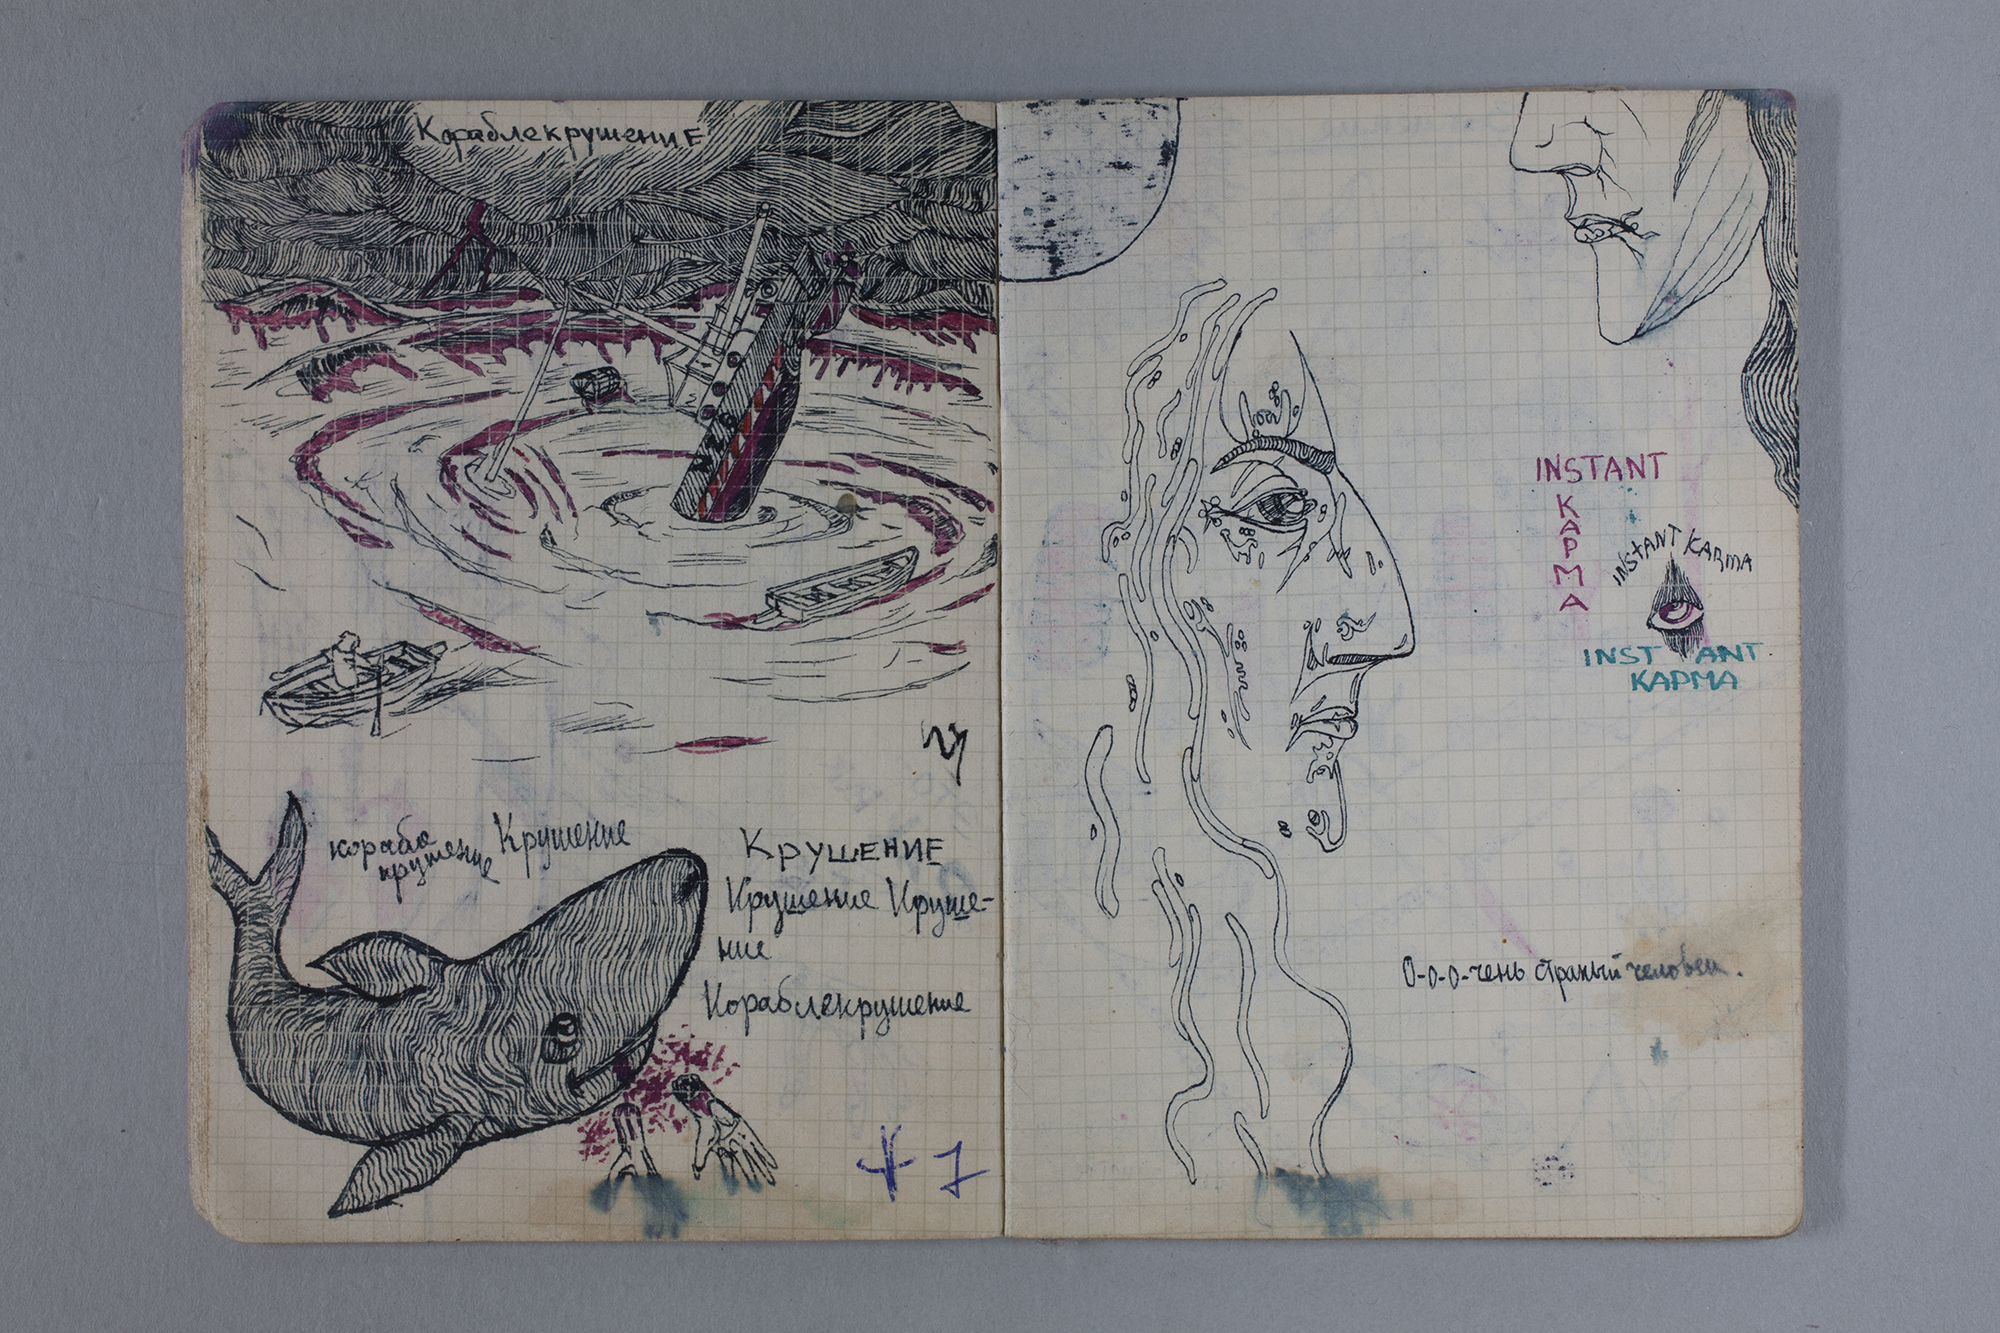 КораблекрушениЕ
корабле
крушение
Крушение
КРУШЕНИЕ
Крушение Круше-
ние
Кораблекрушение
INSTANT
KAPMA
INSTANT KARMA
INST ANT
KAPMA
О-о-о-чень странный человек.